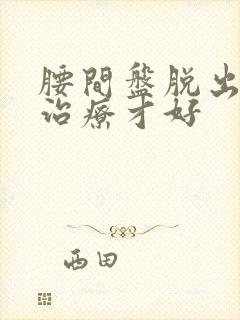 腰間盤脱出
治療才好
西田